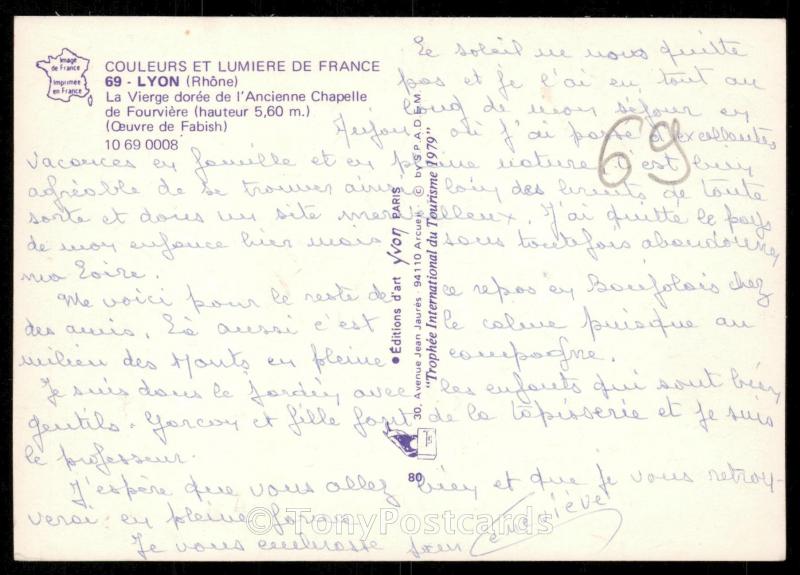 Image
de France
Imprimée
en France
COULEURS ET LUMIERE DE FRANCE
69 - LYON (Rhône)
La Vierge dorée de l'Ancienne Chapelle
de Fourvière (hauteur 5,60 m.)
(Œuvre de Fabish)
10 69 0008
69
Le soleil ne nous quitte
pas et je l'ai eu tout au
long de mon séjour en
où j'ai passé d'excellentes
vacances en famille et en pleine nature. C'est bien
agréable de se trouver ainsi loin des bruits de toute
sorte et dans un site merveilleux. J'ai quitté le pays
de mon enfance hier mais sans toutefois abandonner
ma Loire.
Me voici pour le reste de ce repos en Baujolais chez
des amis. Là aussi c'est le calme puisque au
milieu des Monts en pleine campagne.
Je suis dans le jardin avec les enfants qui sont bien
gentils. Garçon et fille font de la tapisserie et je suis
le professeur.
J'espère que vous allez bien et que je vous retrou-
verai en pleine forme
Je vous embrasse
● Éditions d'art yvon PARIS
30, Avenue Jean Jaurès - 94110 Arcueil - © by S.P.A.D.E.M.
"Trophée International du Tourisme 1979"
80
©TonyPostcards